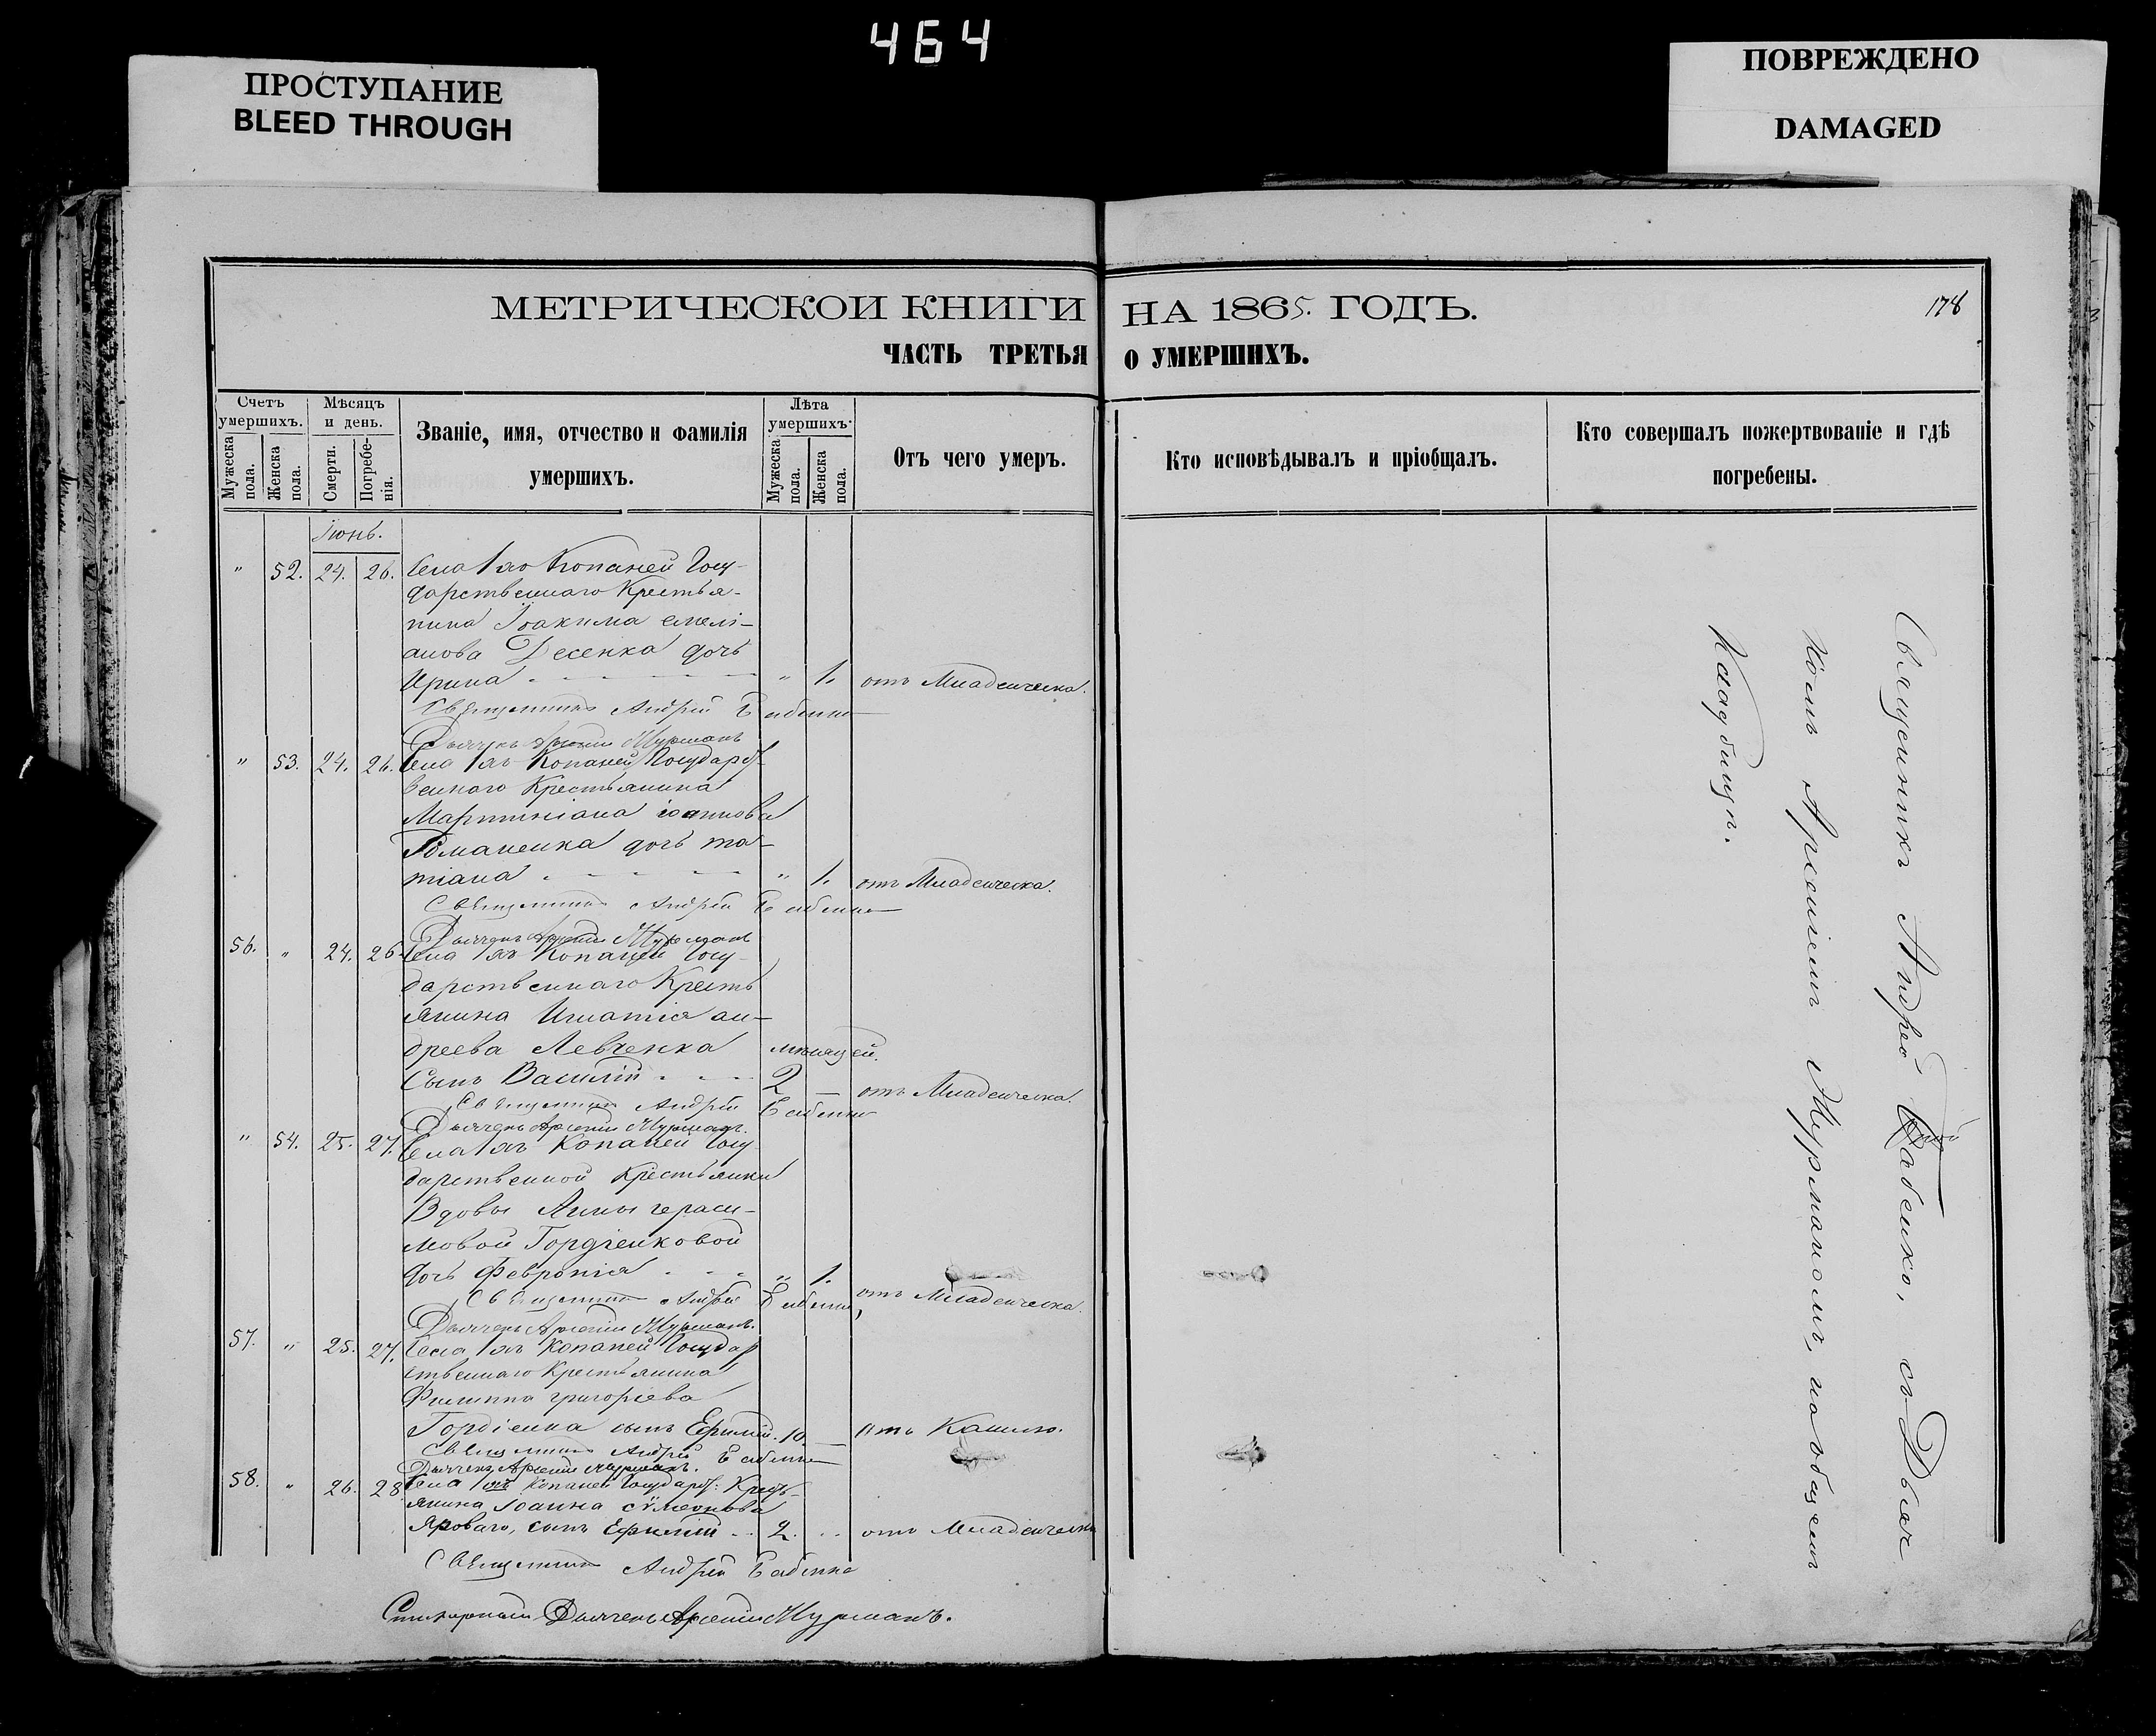 464
ПРОСТУПАНИЕ
BLEED THROUGH
ПОВРЕЖДЕНО
DAMAGED
МЕТРИЧЕСКОИ КНИГИ НА 1865. ГОДЪ.
178
ЧАСТЬ ТРЕТЬЯ О УМЕРШИХЪ.
Счетъ умершихъ.
Мужеска пола.
Женска пола.
Мѣсяцъ и день.
Смерти.
Погребенія.
Званіе, имя, отчество и фамилія
умершихъ.
Лѣта умершихъ.
Мужеска пола.
Женска пола.
Отъ чего умеръ.
Кто исповѣдывалъ и пріобщалъ.
Кто совершалъ пожертвованіе и гдѣ
погребены.
Іюнь.
" 52. 24. 26. Села Копаней Госу-
дарственнаго Крестья-
нина Іоакима емелі-
анова Десенка дочь
Ирина " 1. отъ Младенческа.
Священникъ Андрей Бабенко
Дьячекъ Арсеній Мурманъ
" 53. 24. 26. Села Копаней Государст-
веннаго Крестьянина
Мартиніана іоаннова
Романенка дочь та-
тіана " 1. отъ Младенческа.
Священникъ Андрей Бабенко
Дьячекъ Арсеній Мурманъ
56. " 24. 26. Села Копаней Госу-
дарственнаго Кресть
янина Игнатія ан-
дреева Левченка мѣсяцей.
Сынъ Василій 2 — отъ Младенческа.
Священникъ Андрей Бабенко
Дьячекъ Арсеній Мурманъ.
" 54. 25. 27. Села Копаней Госу
дарственной Крестьянки
Вдовы Анны гераси-
мовой Гордіенковой
дочь Февронія " 1. отъ Младенческа.
Священникъ Андрей Бабенко
Дьячекъ Арсеній Мурманъ.
57. " 25. 27. Села Копаней Государ
ственнаго Крестьянина
Филиппа григоріева
Гордіенка сынъ Ефимій. 10. — отъ Кашлю.
Священникъ Андрей Бабенко
Дьячекъ Арсеній Мурманъ.
58. " 26. 28 Села Копаней Государст: Кресть-
янина Іоанна сѵмеонова
Яроваго, сынъ Ефимій 2. отъ Младенческа
Священникъ Андрей Бабенко
Стихарный Дьячекъ Арсеній Мурманъ.
Священникъ Андрей Бабенко, съ Дьяч
комъ Арсеніемъ Мурманомъ, на общемъ
Кладбищѣ.